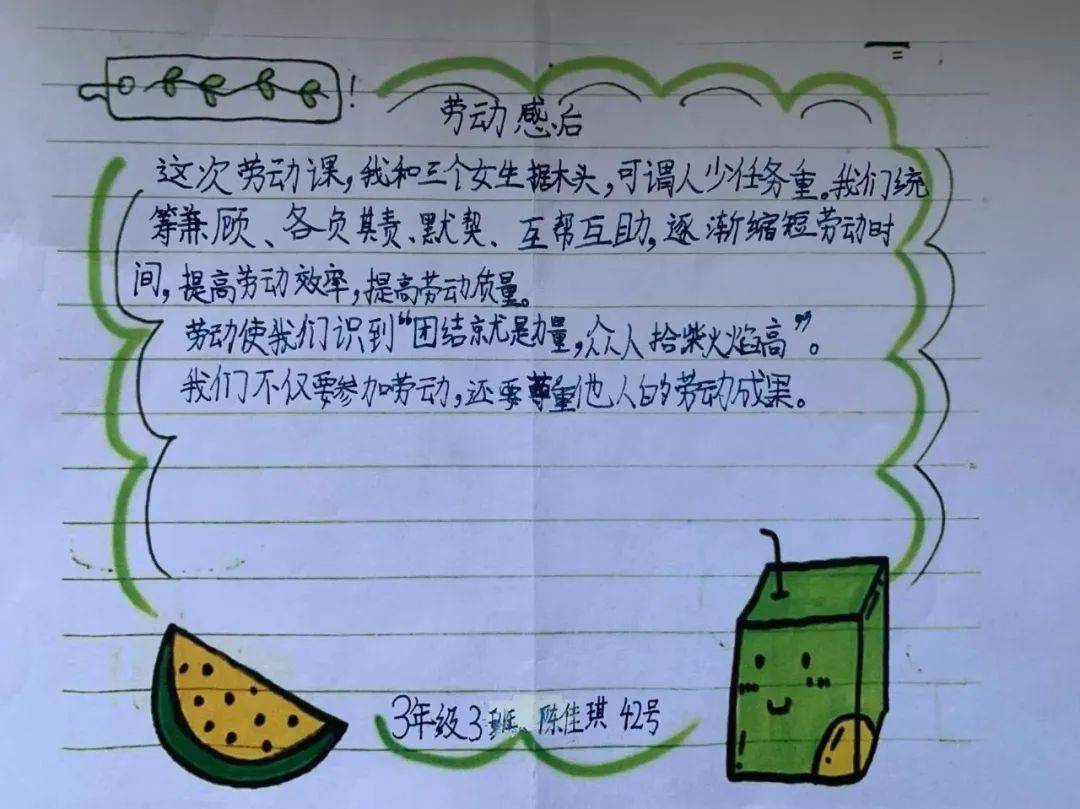 劳动感后
这次劳动课,我和三个女生据木头,可谓人少任务重。我们统
筹兼顾、各负其责、默契、互帮互助,逐渐缩短劳动时
间,提高劳动效率,提高劳动质量。
劳动使我们识到“团结就是力量,众人拾柴火焰高”。
我们不仅要参加劳动,还要尊重他人的劳动成果。
3年级3班 陈佳琪 42号